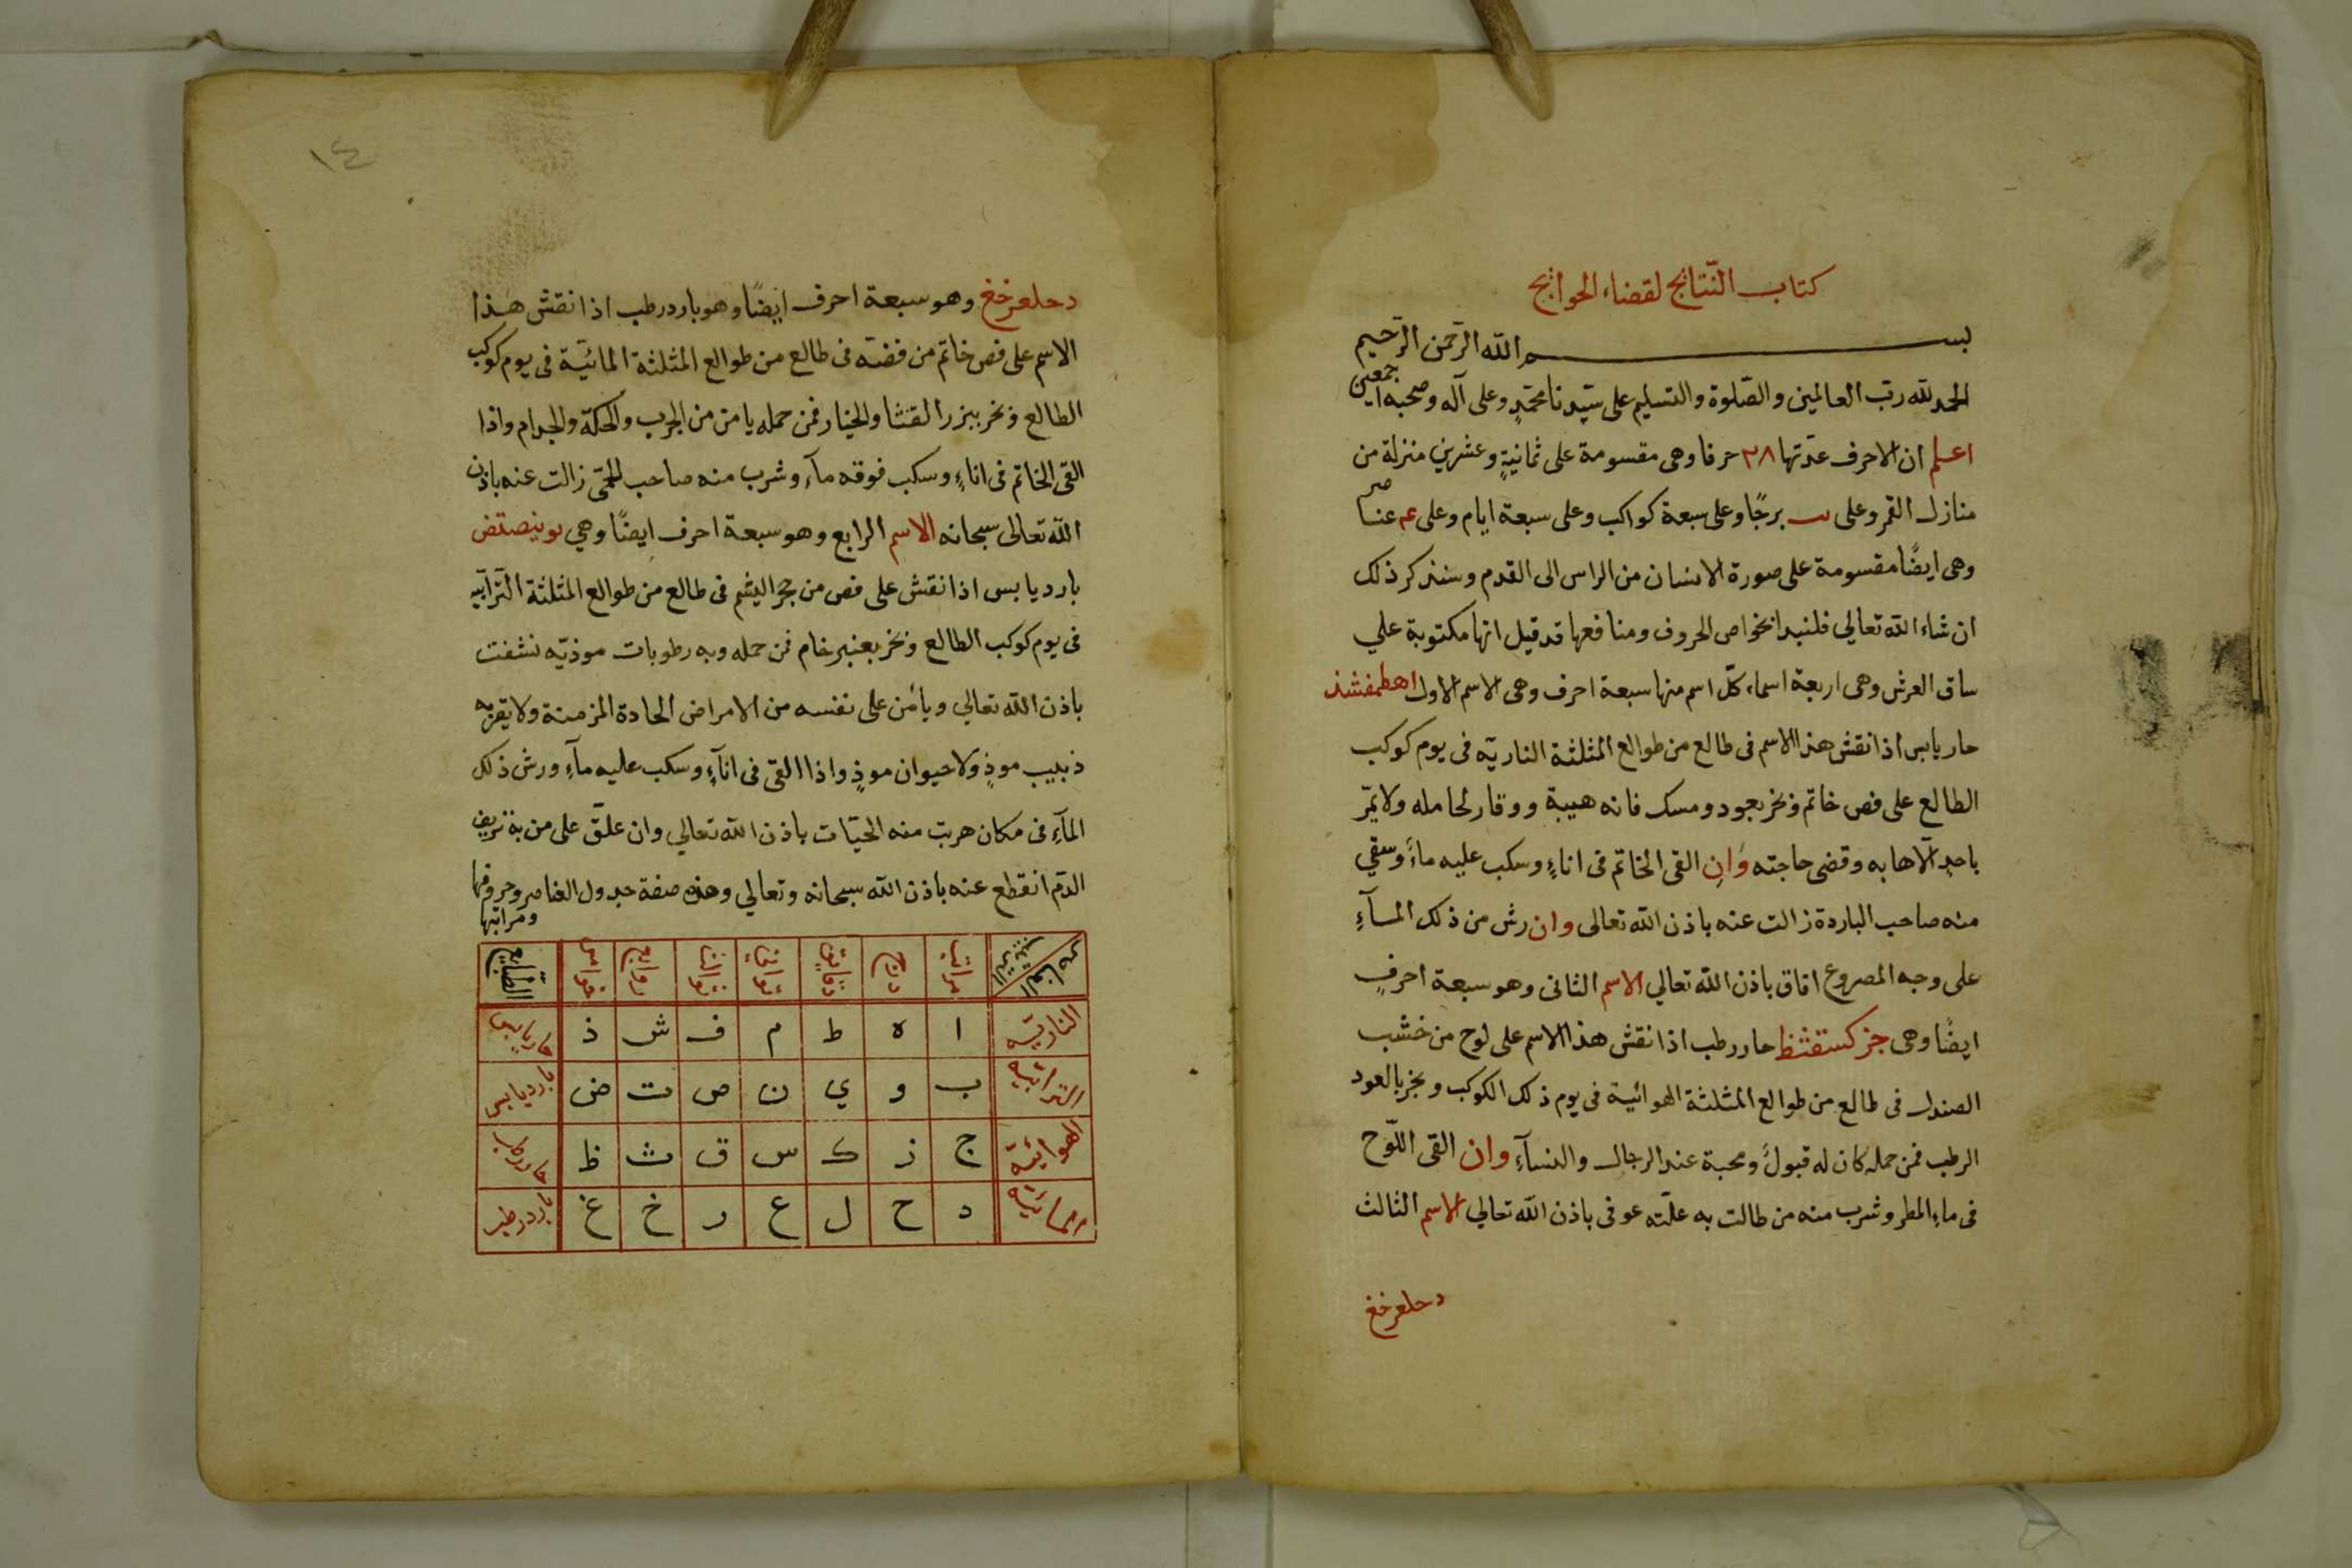 كتاب النتائج لقضاء الحوائج
بسم الله الرحمن الرحيم
الحمد لله رب العالمين والصلوة والتسليم على سيدنا محمد وعلى آله وصحبه اجمعين
اعلم ان الاحرف عدتها ٢٨ حرفا وهي مقسومة على ثمانية وعشرين منزلة من
منازل القمر وعلى يب برجا وعلى سبعة كواكب وعلى سبعة ايام وعلى عناصر
وهي ايضا مقسومة على صورة الانسان من الراس الى القدم وسنذكر ذلك
ان شاء الله تعالي فلنبدا بخواص الحروف ومنافعها قد قيل انها مكتوبة علي
ساق العرش وهي اربعة اسماء كل اسم منها سبعة احرف وهي الاسم الاول اهطمفشذ
حار يابس اذا نقش هذا الاسم في طالع من طوالع المثلثة النارية في يوم كوكب
الطالع على فص خاتم وبخر بعود ومسك فانه هيبة ووقار لحامله ولا يمر
باحد الا هابه وقضى حاجته وان القى الخاتم في اناء وسكب عليه ماء وسقي
منه صاحب الباردة زالت عنه باذن الله تعالى وان رش من ذلك المآء
على وجه المصروع افاق باذن الله تعالي الاسم الثاني وهو سبعة احرف
ايضا وهي جزكسقثظ حار رطب اذا نقش هذا الاسم على لوح من خشب
الصندل في طالع من طوالع المثلثة الهوائية في يوم ذلك الكوكب وبخر بالعود
الرطب فمن حمله كان له قبول ومحبة عند الرجال والنسآء وان القى اللوح
في ماء المطر وشرب منه من طالت به علته عوفى باذن الله تعالي الاسم الثالث
دحلعرخغ
١٤
دحلعرخغ وهو سبعة احرف ايضا وهو بارد رطب اذا نقش هذا
الاسم على فص خاتم من فضة في طالع من طوالع المثلثة المائية في يوم كوكب
الطالع وبخر ببزر القثا والخيار فمن حمله يامن من الجرب والحكة والجدام واذا
القى الخاتم في اناء وسكب فوقه مآء وشرب منه صاحب الحمى زالت عنه باذن
الله تعالى سبحانه الاسم الرابع وهو سبعة احرف ايضا وهي بوينصتض
بارد يابس اذا نقش على فص من حجر اليشم في طالع من طوالع المثلثة الترابيه
في يوم كوكب الطالع وبخر بعنبر خام فمن حمله وبه رطوبات موذيه نشفت
باذن الله تعالي ويأمن على نفسه من الامراض الحادة المزمنة ولا يقربه
دبيب موذ ولا حيوان موذ واذا القى في انآء وسكب عليه مآء ورش ذلك
المآء في مكان هربت منه الحيات باذن الله تعالي وان علق على من به نزيف
الدم انقطع عنه باذن الله سبحانه وتعالي وهذه صفة جدول العناصر وحروفها
ومراتبها
مراتب درج دقائق ثواني ثوالث روابع خوامس الطبايع
النارية ا ه ط م ف ش ذ حار يابس
الترابية ب و ي ن ص ت ض بارد يابس
الهوائية ج ز ك س ق ث ظ حار رطب
المائية د ح ل ع ر خ غ بارد رطب